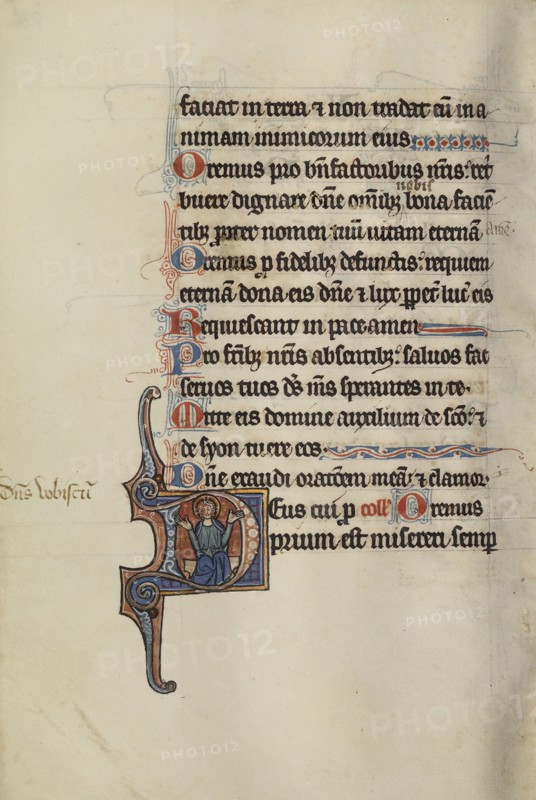 faciat in terra ⁊ non tradat eū in a
nimam inimicorum eius
Oremus pro bn̄factoribus nr̄is. ret
buere dignare dn̄e om̄ibꝫ nobis bona faciē
tibꝫ ꝓpter nomen tuū uitam eternā Amē
Oremus ꝑ fidelibꝫ defunctis. requiem
eternā dona eis dn̄e ⁊ lux ꝑpet luc̄ eis
Requiescant in pace amen
Pro fr̄ibꝫ nr̄is absentibꝫ. saluos fac
seruos tuos ds̄ m̄s sperantes in te.
Mitte eis domine auxilium de sc̄o. ⁊
de syon tuere eos.
Dn̄e exaudi orationem meā. ⁊ clamor.
dn̄s vobiscū
Deus cui ꝓ coll' Oremus
prium est misereri semp
PHOTO12